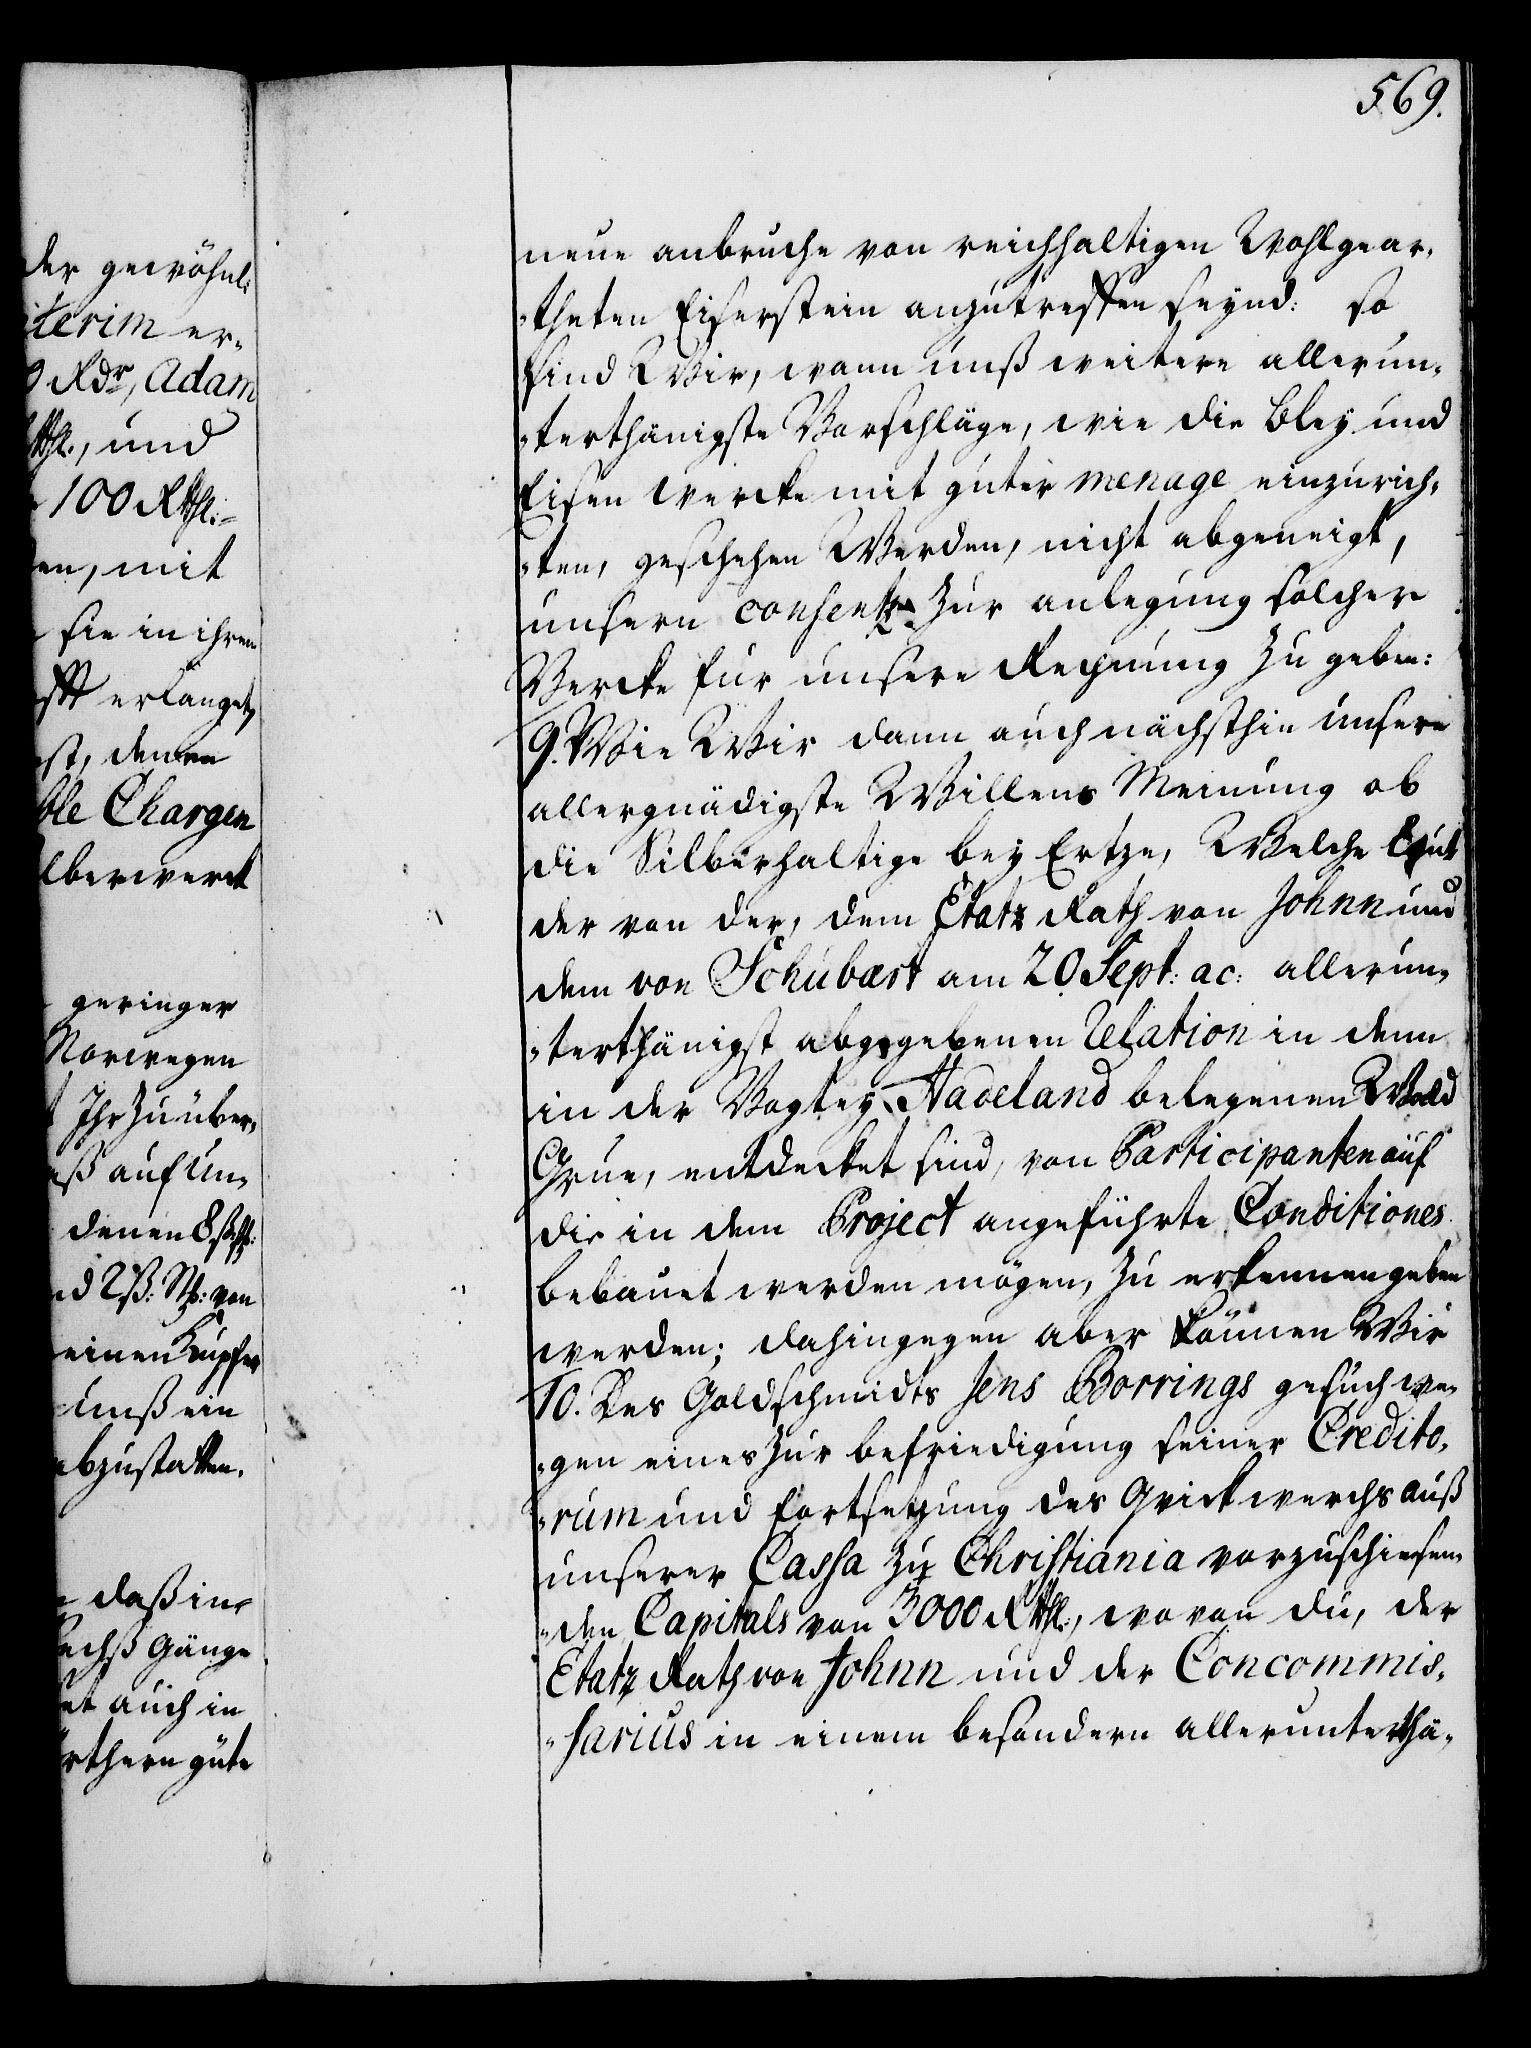 569.
der gewöhnl:
iterim er-
0 Rdr, Adam
Rthl., und
100 Rthl:
en, mit
sie in ihren
erlanget,
ist, denen
ble Chargen
lberwerck
geringer
Norwegen
Ihr zu über-
ß auf un-
denen 8
nd 2 ß: von
einen Kupfer
unß ein
abzustatten.
daß in
sechß Gänge
et auch in
rthern güte
neue anbruche von reichhaltigen Wohlgear-
-theten Eiserstein anzutreffen seynd: so
sind Wir, wann unß weitere allerun-
-terthänigste Vorschläge, wie die Bley und
Eisen Wercke mit guter menage einzurich-
-ten, geschehen Werden, nicht abgeneigt,
unsern consens zur anlegung solcher
Wercke fur unsere Rechnung zu geben:
9. Wie Wir dann auch nächsthin unsere
allergnädigste Willens Meinung ob
die Silberhaltige bey Ertze, Welche laut
der von der, dem Etatz Rath von Johnn und
dem von Schubart am 20 Sept: ac: allerun-
-terthänigst abgegebenen Relation in dem
in der Vogtey Hadeland belegenen Wald
Grue, entdecket sind, von Participanten auf
die in dem Project angeführte Conditiones
bebauet werden mögen, zu erkennen geben
werden; dahingegen aber können Wir
10. Des Goldschmidts Jens Borrings gesuch we-
-gen eines zur befriedigung seiner Credito-
-rum und fortsetzung des Qvickwerchs auß
unserer Cassa zu Christiania vorzuschiesen-
-den Capitals von 3000 Rthl., wovon du, der
Etatz Rath von Johnn und der Concommis-
-sarius in einem besondern allerunterthä-